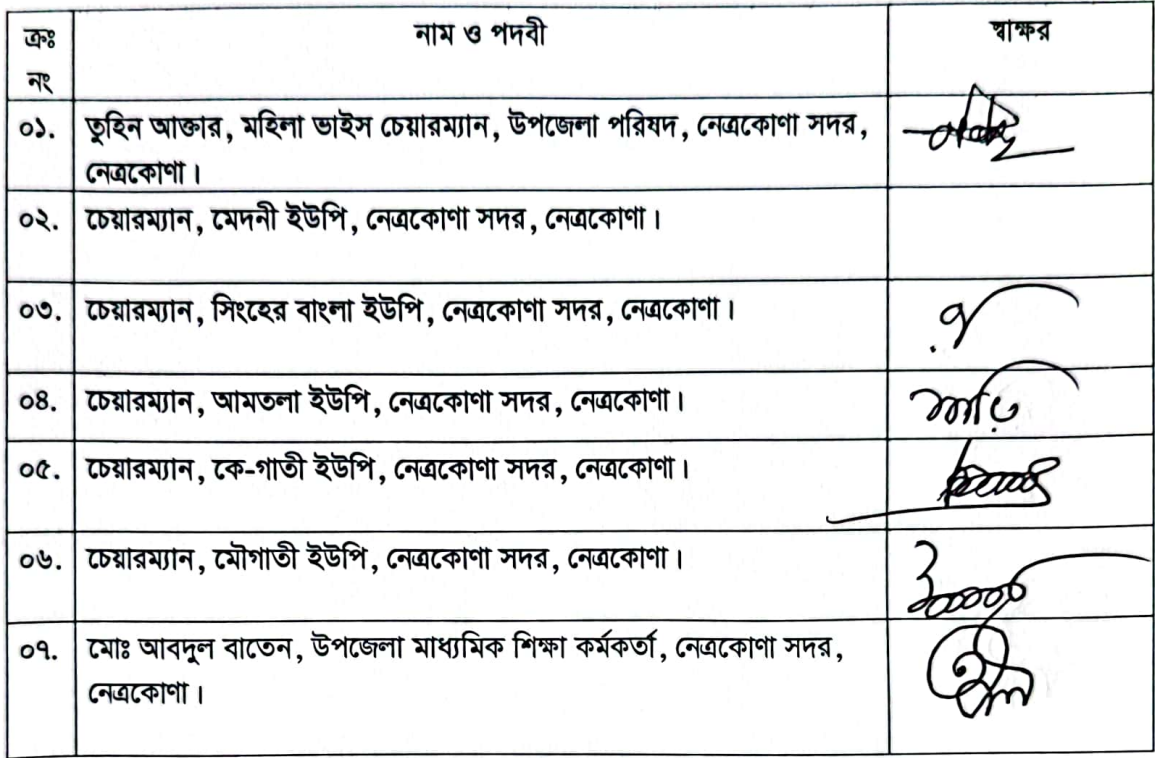 ক্রঃ নাম ও পদবী স্বাক্ষর
নং
০১. তুহিন আক্তার, মহিলা ভাইস চেয়ারম্যান, উপজেলা পরিষদ, নেত্রকোণা সদর,
নেত্রকোণা।
০২. চেয়ারম্যান, মেদনী ইউপি, নেত্রকোণা সদর, নেত্রকোণা।
০৩. চেয়ারম্যান, সিংহের বাংলা ইউপি, নেত্রকোণা সদর, নেত্রকোণা।
০৪. চেয়ারম্যান, আমতলা ইউপি, নেত্রকোণা সদর, নেত্রকোণা।
০৫. চেয়ারম্যান, কে-গাতী ইউপি, নেত্রকোণা সদর, নেত্রকোণা।
০৬. চেয়ারম্যান, মৌগাতী ইউপি, নেত্রকোণা সদর, নেত্রকোণা।
০৭. মোঃ আবদুল বাতেন, উপজেলা মাধ্যমিক শিক্ষা কর্মকর্তা, নেত্রকোণা সদর,
নেত্রকোণা।